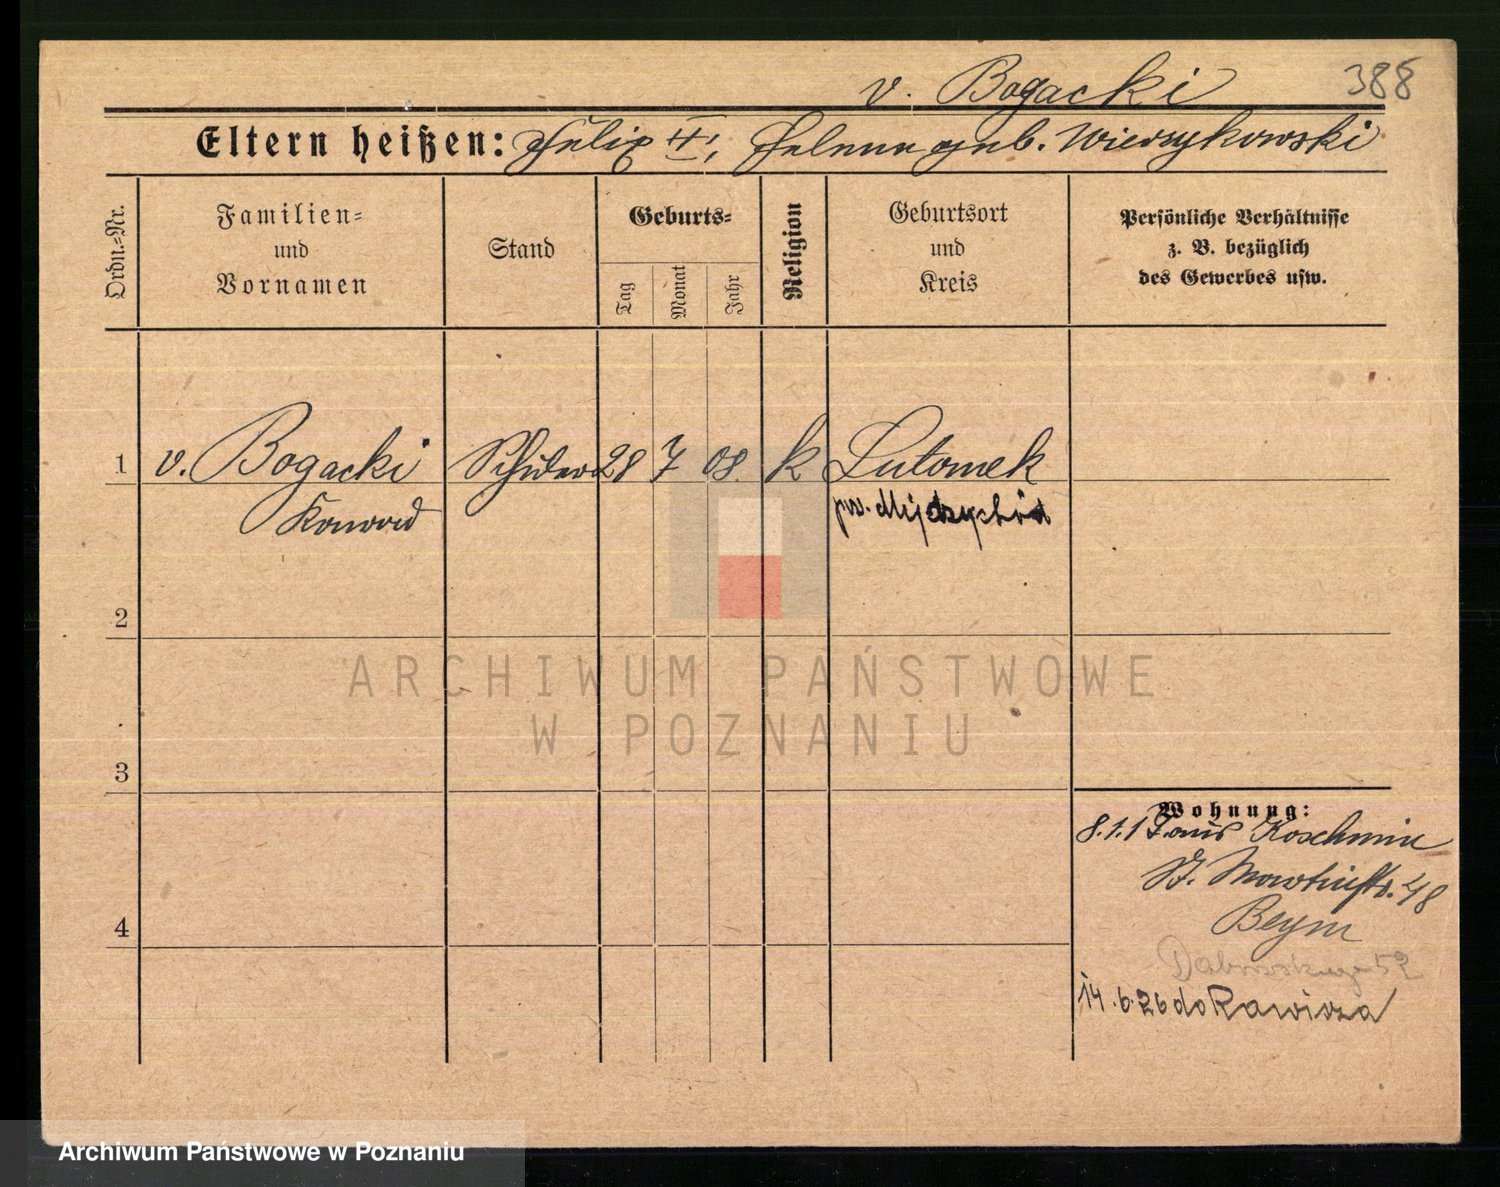 v. Bogacki 388
Eltern heißen: Felix II, Helene geb. Wierzykowski
Ordn.-Nr.
Familien-
und
Vornamen
Stand
Geburts-
Tag
Monat
Jahr
Religion
Geburtsort
und
Kreis
Persönliche Verhältnisse
z. B. bezüglich
des Gewerbes usw.
1 v. Bogacki Schüler 28 7 08. k Lutomek
Konrad pow. Międzychód
2
3
4
Wohnung:
8.1.1 aus Koschmin
St. Martinstr. 48
Beym
52
14.6.26 do Rawicza
ARCHIWUM PAŃSTWOWE
W POZNANIU
Archiwum Państwowe w Poznaniu